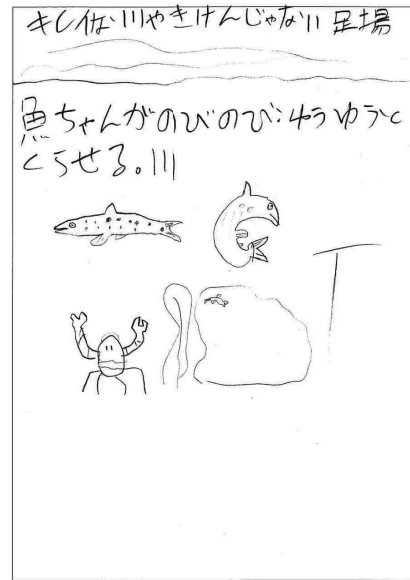 キレイな川やきけんじゃない足場
魚ちゃんがのびのびゆうゆうと
くらせる。川